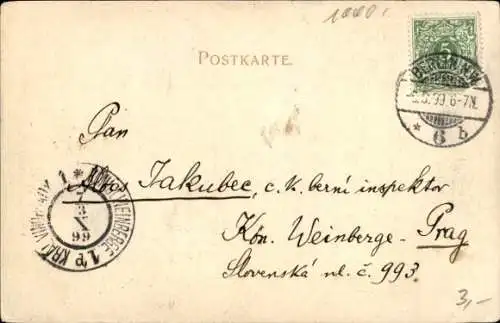 1000.
5
POSTKARTE.
BERLIN N.W.
5.99.6-7N.
* 6 b
Pan
Alois Jakubec, c. k. berní inspektor
Kön. Weinberge - Prag
Slovenská ul. č. 993.
3,-
KÖNIGL. WEINBERGE 1
KRÁL. VINOHRADY 1 *
7
3
X
99